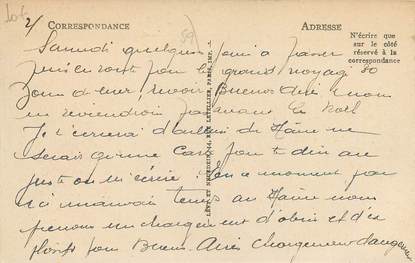 2/
CORRESPONDANCE
ADRESSE
N'écrire que
sur le côté
réservé à la
correspondance
Samedi quelques jours à passer
puis en route pour le grand voyage 80
jours de mer, Buenos Aires nous
en reviendrons pas avant la Noël
Je t'enverrai d'ailleurs du Hâvre ne
serais comme Casa pour te dire au
juste où m'écrire en ce moment pas
ici mauvais temps au Hâvre nous
prenons un chargement d'obus et d'ex
plosifs pour Buenos-Aires chargement dangereux
LÉVY ET NEURDEIN RÉUNIS, 44, RUE LETELLIER, PARIS, IMP.